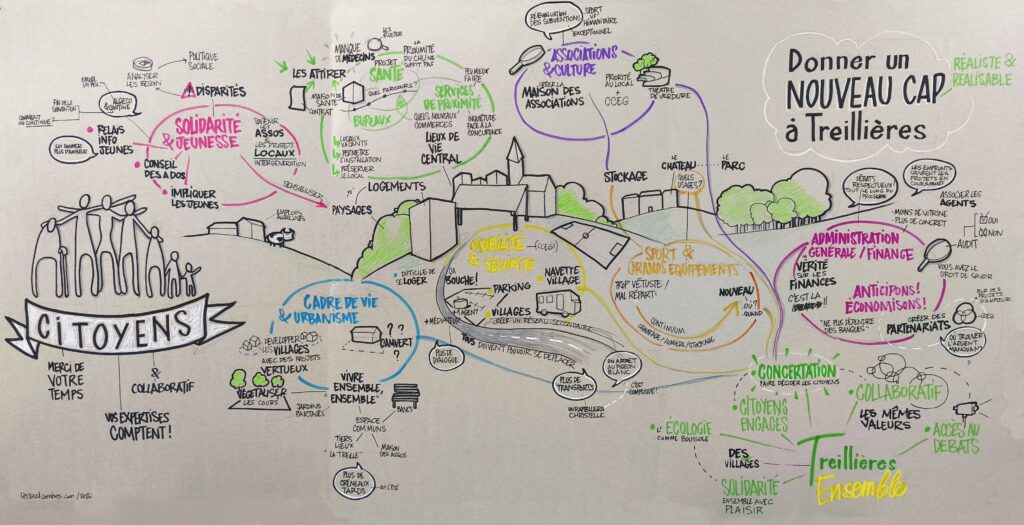 Donner un
NOUVEAU CAP
à Treillières
RÉALISTE &
RÉALISABLE
POLITIQUE
SOCIALE
ANALYSER
LES BESOIN
DISPARITÉS
ALGECO
RELAIS
INFO
JEUNES
SOLIDARITÉ
& JEUNESSE
SOUTENIR
LES ASSOS
LES PROJETS
LOCAUX
INTERGÉNÉRATION
CONSEIL
DES ADOS
IMPLIQUER
LES JEUNES
SENSIBILISER
PAYSAGES
MANQUE DE
MÉDECINS
LES ATTIRER
MAISON DE
SANTÉ
CONTRAT
PROJET
SANTÉ
QUEL PARCOURS?
LA
PROXIMITÉ
DU CHU NE
SUFFIT PAS
PEU MIEUX
FAIRE
SERVICES
DE PROXIMITÉ
BUREAUX
QUELS NOUVEAUX
COMMERCES
INQUIÉTUDE
FACE À LA
CONCURENCE
LOCAUX
VACANTS
PERMETTRE
L'INSTALLATION
PRÉSERVER
LE LOCAL
LIEUX DE
VIE
CENTRAL
LOGEMENTS
RÉÉVALUATION
DES SUBVENTIONS
SPORT
HUMANITAIRE
EXCEPTIONNEL
ASSOCIATIONS
& CULTURE
CRÉER LA
MAISON DES
ASSOCIATIONS
PRIORITÉ
AU LOCAL
+
OCEG
THÉATRE DE
VERDURE
STOCKAGE
LE
CHÂTEAU
QUELS
USAGES?
LE
PARC
EMPLOIS
AGRICOLES
CITOYENS
MERCI DE
VOTRE
TEMPS
& COLLABORATIF
VOS EXPERTISES
COMPTENT!
CADRE DE VIE
& URBANISME
DEVELOPPER
LES VILLAGES
AVEC DES PROJETS
VERTUEUX
VÉGÉTALISER
LES COURS
JARDINS
PARTAGÉS
VIVRE
ENSEMBLE,
"ENSEMBLE"
BANCS
ESPACE
COMMUNS
TIERS
LIEUX
"LA TREILLE"
MAISON
DES ASSOS
PLUS DE
CRÉNEAUX
TARDS
DIFFICILE DE
SE LOGER
MOBILITÉ
& SÉCURITÉ
(CCEG)
ÇA
BOUCHE!
PARKING
VILLAGES
NAVETTE
VILLAGE
CRÉER UN RÉSEAU SECONDAIRE
AGENT
+ MÉDIATEUR
TOUS DOIVENT POUVOIR SE DÉPLACER
PLUS DE
DIALOGUE
PLUS DE
TRANSPORTS
UN ARRET
AU PIGEON
BLANC
C'EST
COMPLIQUÉ
ON RAPPELLERA
CHRISTELLE
SPORT &
GRANDS ÉQUIPEMENTS
TROP VÉTUSTE/
MAL RÉPARTI
NOUVEAU
OÙ?
QUAND
CONTINUUM
DÉBATS
RESPECTUEUX
TOUT LE LONG DU
PROCESSUS
LES EMPRUNTS
COUVRENT LES
PROJETS EN
COURS
ASSOCIER LES
AGENTS
- MOINS DE VITRINE
+ PLUS DE CONCRET
OUI
NON
AUDIT
VOUS AVEZ LE
DROIT DE SAVOIR
ADMINISTRATION
GÉNÉRALE / FINANCE
LA
VÉRITÉ
SUR LES
FINANCES
C'EST LA
ANTICIPONS!
ÉCONOMISONS!
"NE PLUS DÉPENDRE
DES BANQUES"
CRÉER DES
PARTENARIATS
SUR DES
PROJETS
D'AMPLEUR
CCEG
OÙ TROUVER
L'ARGENT
MANQUANT
CONCERTATION
FAIRE DÉCIDER LES CITOYENS
CITOYENS
ENGAGÉS
COLLABORATIF
LES MÊMES
VALEURS
ACCÈS AU
DÉBATS
L'ÉCOLOGIE
COMME BOUSSOLE
DES
VILLAGES
SOLIDARITÉ
ENSEMBLE AVEC
PLAISIR
Treillières
Ensemble